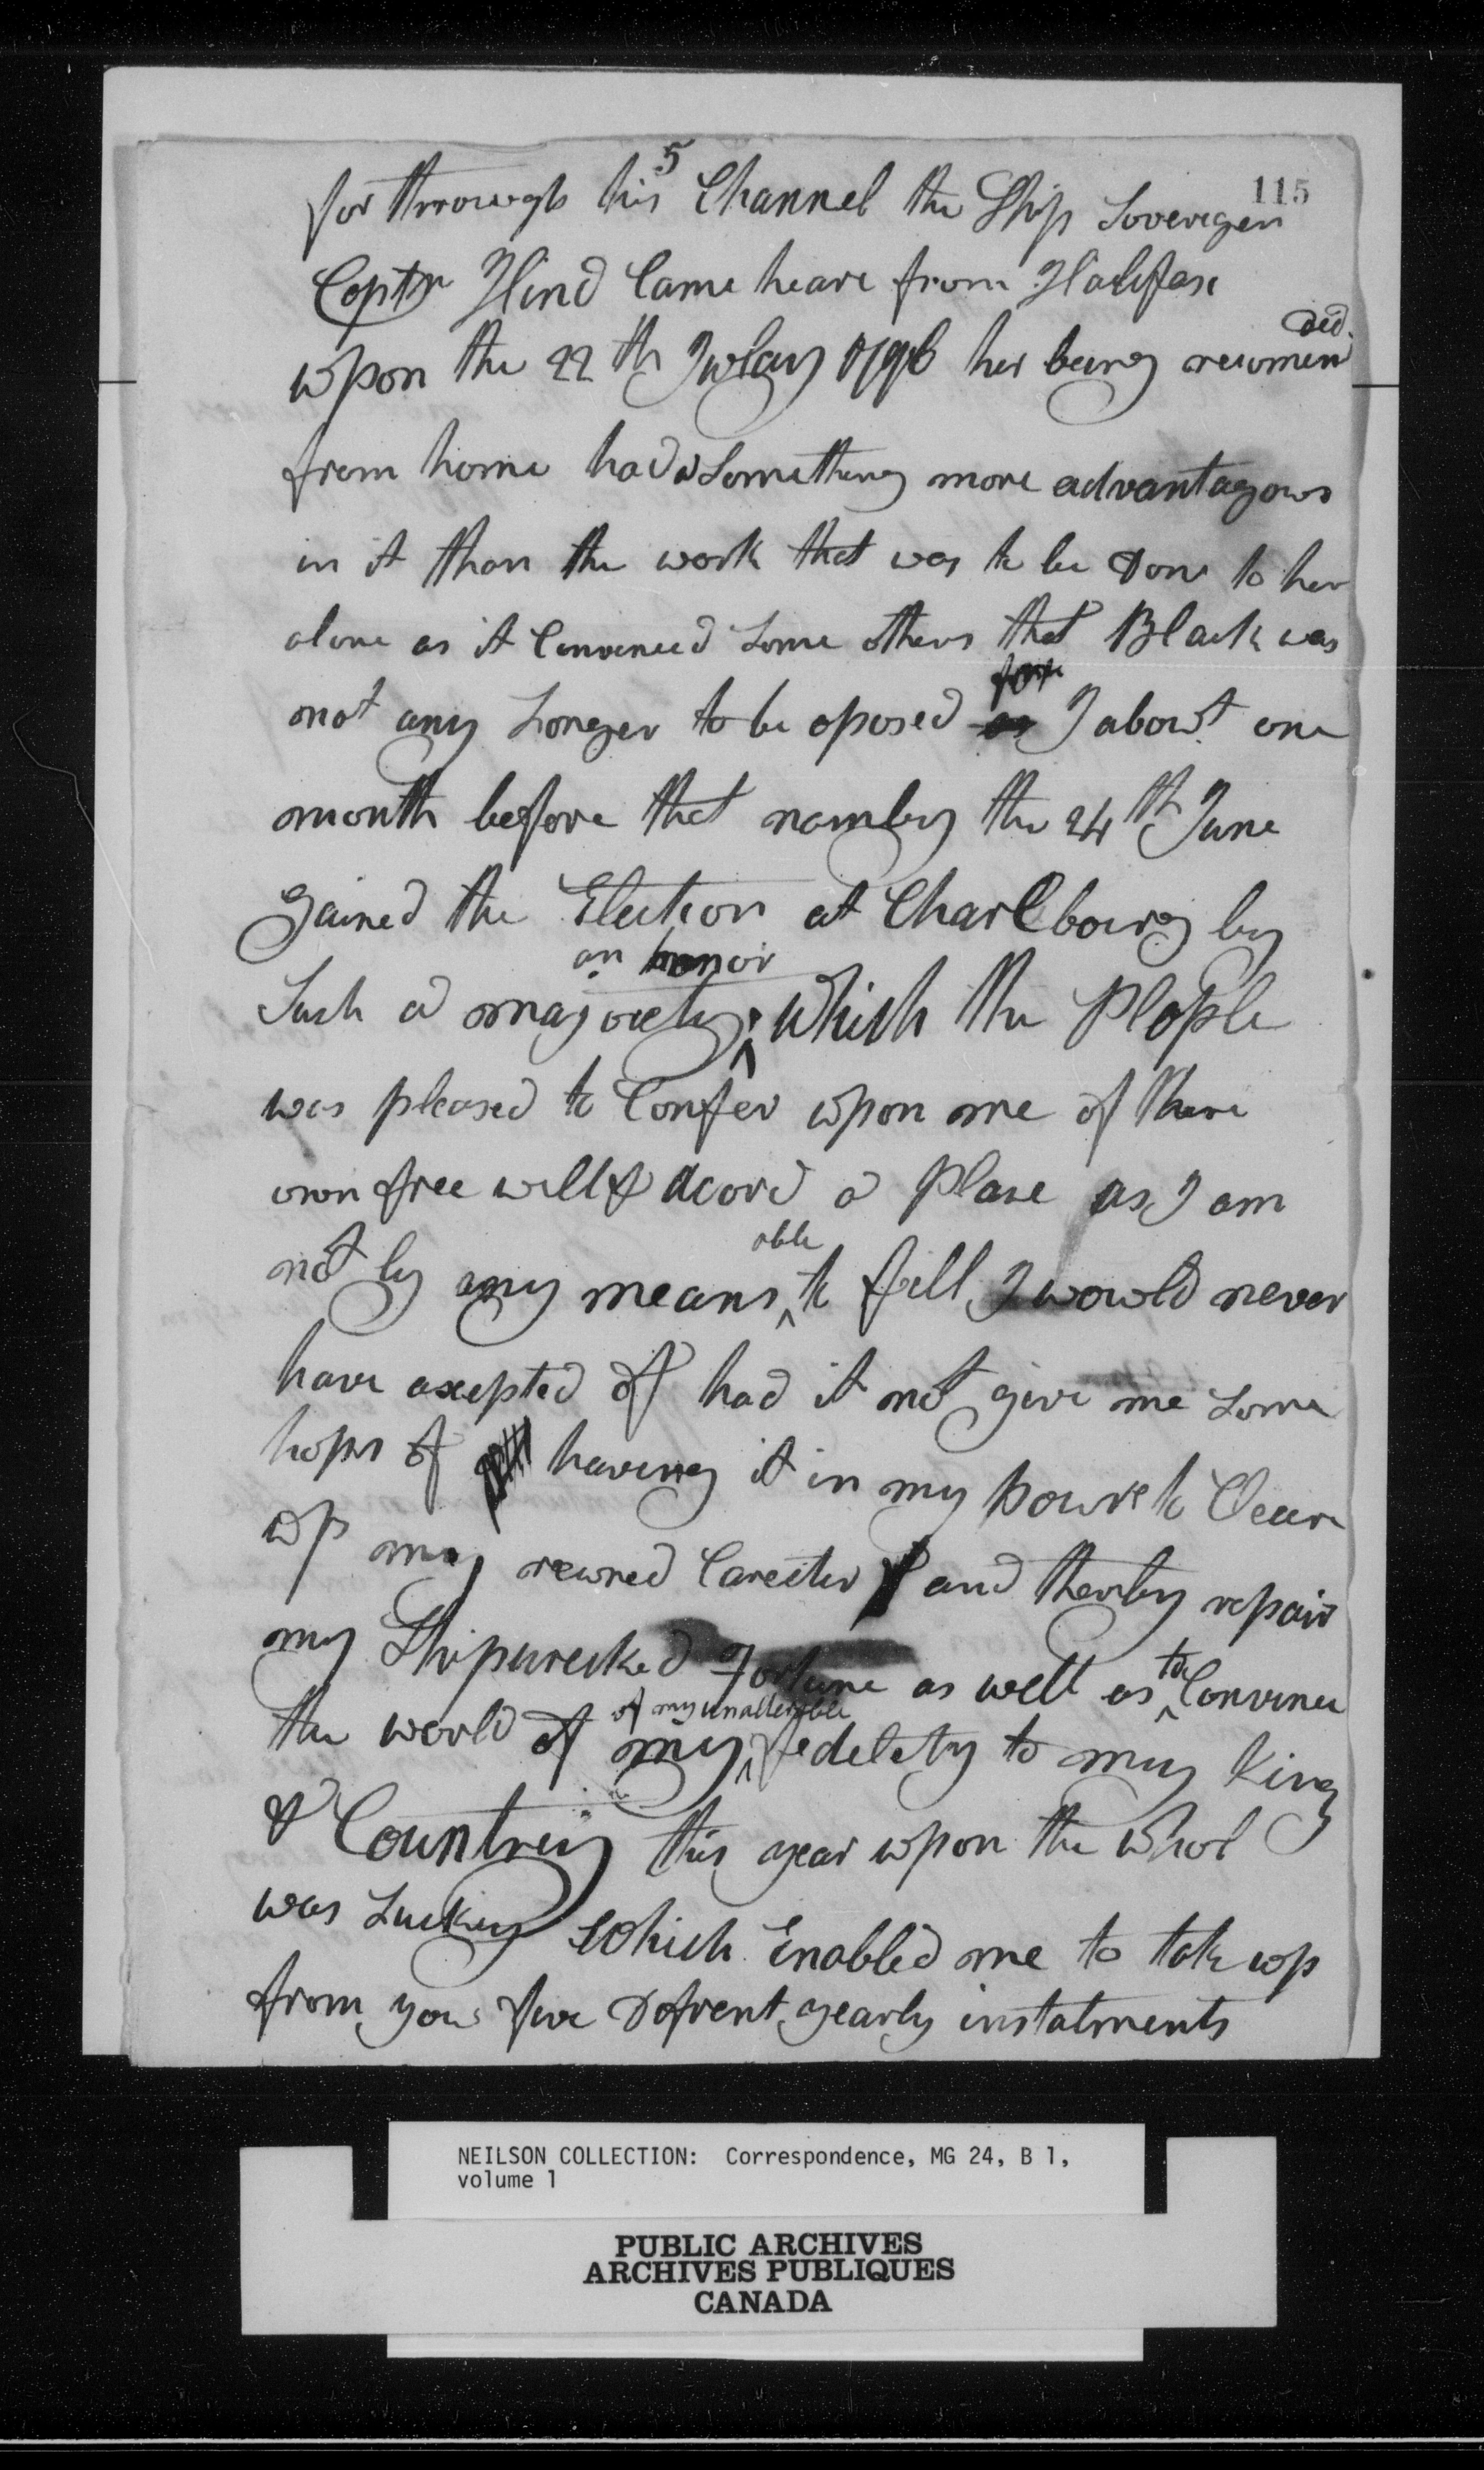 5
115
for throwgh his Channel the Ship Soveregen
Coptn Hind Came heare from Halifax
wpon the 22th Jwlay 1796 her being recomen
ded.
from home had a Something more advantagows
in it than the work that was to be Done to her
alone as it Convenced Some others that Black was
for
not any Longer to be oposed I abowt one
month before that nambly the 24th June
Gained the Election at Charlbourg by
an honor
Such a majorety which the Plople
was pleased to Confer wpon me of there
own free will & Acord a Plase as I am
able
not by any means to fill I wowld never
have axepted of had it not give me Some
hops of having it in my powre to Cleare
wp my rewned Carecter and therby repair
my Shipwrecked Fortune as well as to Convince
of my unalterable
the world of my fedelety to my King
& Countrey this year wpon the whol
was Luckey Which Enabled me to tak wp
from yow five Defrent yearly instalments
NEILSON COLLECTION: Correspondence, MG 24, B 1,
volume 1
PUBLIC ARCHIVES
ARCHIVES PUBLIQUES
CANADA